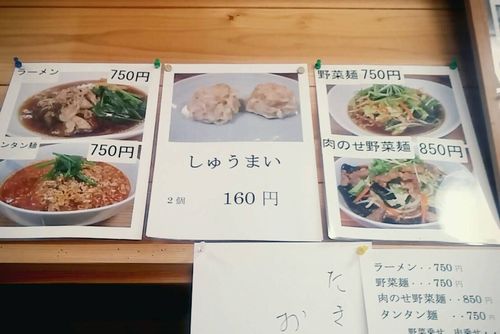 ラーメン 750円
ンタン麺 750円
しゅうまい
2個 160円
野菜麺 750円
肉のせ野菜麺 850円
た
き
お
ラーメン‥750円
野菜麺‥‥750円
肉のせ野菜麺‥850円
タンタン麺‥750円